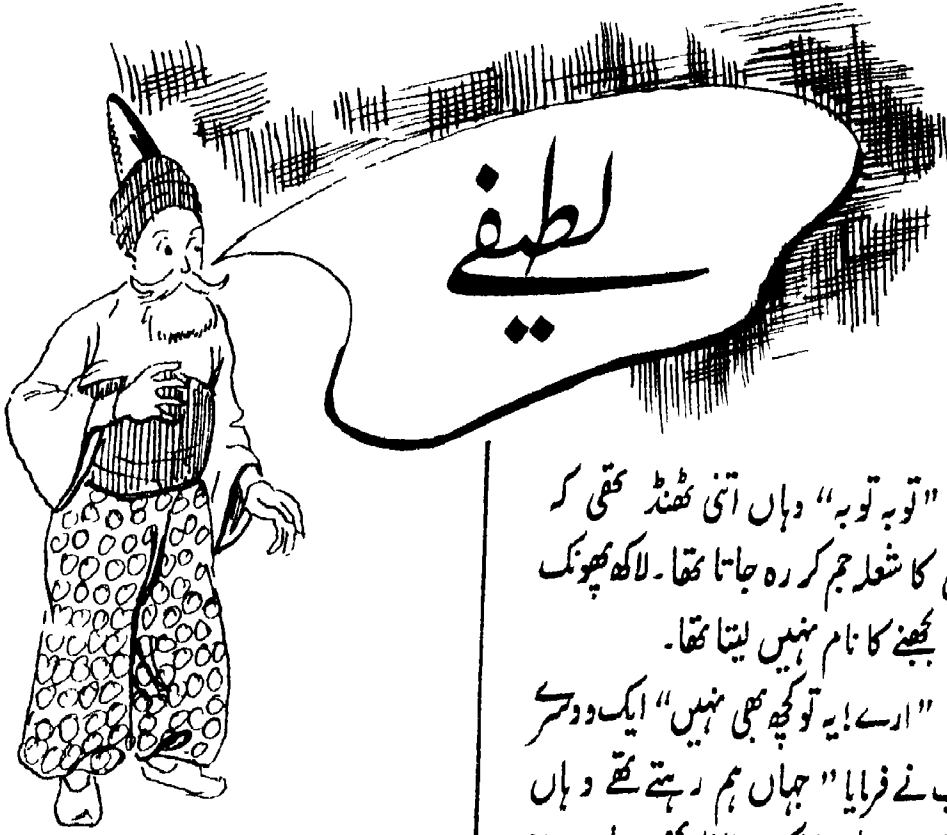 لطیفے
"توبہ توبہ" وہاں اتنی ٹھنڈ تھی کہ
کا شعلہ جم کر رہ جاتا تھا۔ لاکھ پھونک
بجھنے کا نام نہیں لیتا تھا۔
"ارے! یہ تو کچھ بھی نہیں" ایک دوسرے
نے فرمایا "جہاں ہم رہتے تھے وہاں